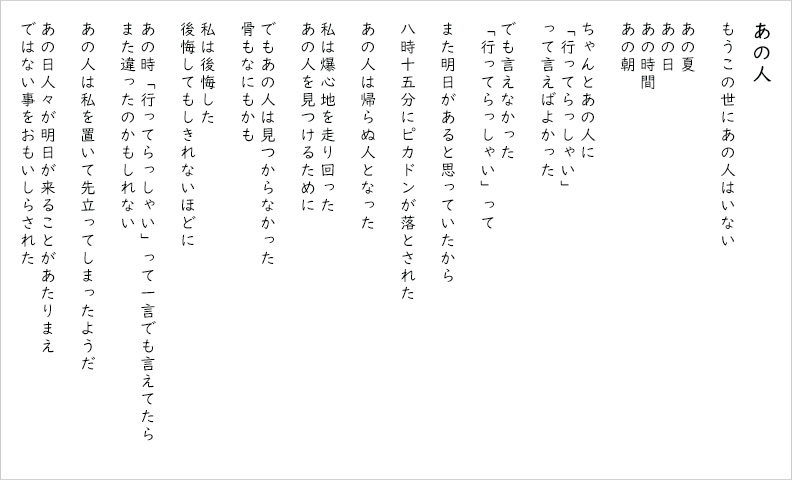 あの人
もうこの世にあの人はいない
あの夏
あの日
あの時間
あの朝
ちゃんとあの人に
「行ってらっしゃい」
って言えばよかった
でも言えなかった
「行ってらっしゃい」って
また明日があると思っていたから
八時十五分にピカドンが落とされた
あの人は帰らぬ人となった
私は爆心地を走り回った
あの人を見つけるために
でもあの人は見つからなかった
骨もなにもかも
私は後悔した
後悔してもしきれないほどに
あの時「行ってらっしゃい」って一言でも言えてたら
また違ったのかもしれない
あの人は私を置いて先立ってしまったようだ
あの日人々が明日が来ることがあたりまえ
ではない事をおもいしらされた